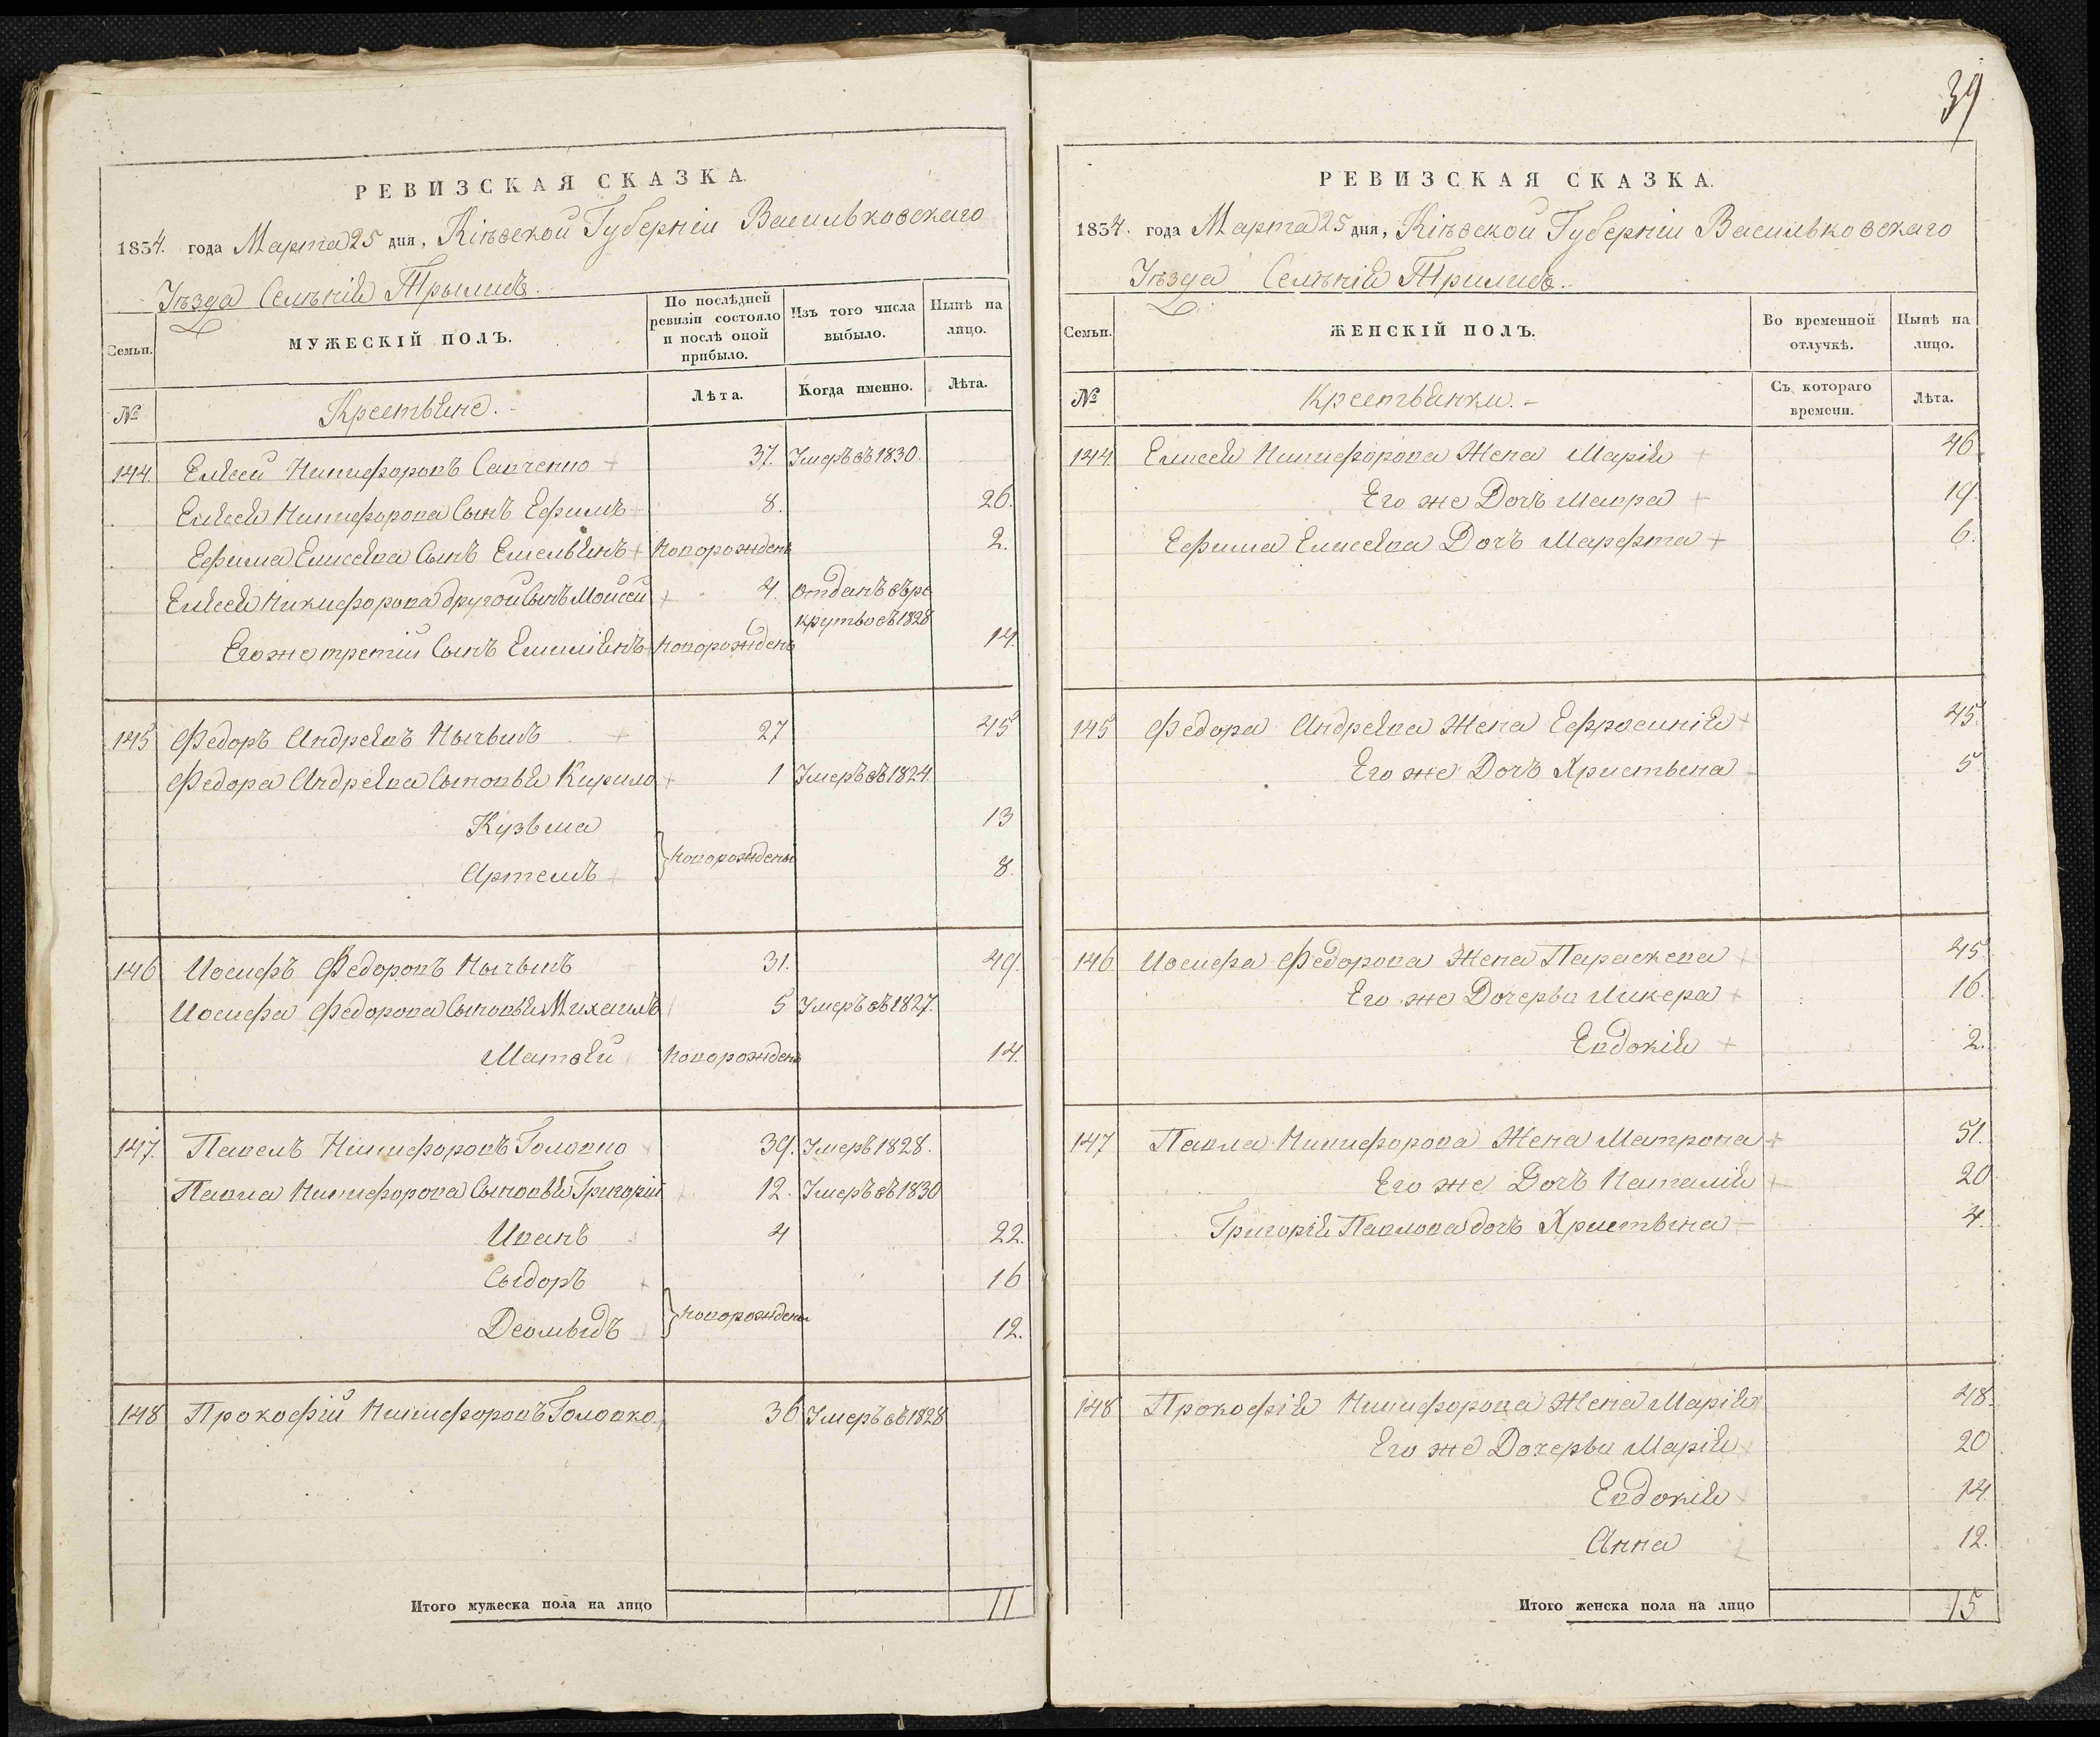 39
РЕВИЗСКАЯ СКАЗКА.
1834. года Марта 25 дня, Кіевской Губерніи Васильковскаго
Уѣзда Селѣнія Трылисъ.
Семьи.
МУЖЕСКІЙ ПОЛЪ.
По послѣдней ревизіи состояло и послѣ оной прибыло.
Изъ того числа выбыло.
Нынѣ на лицо.
№
Крестьяне.
Лѣта.
Когда именно.
Лѣта.
144. Елисей Никифоровъ Савченко 37. Умеръ въ 1830.
Елисея Никифорова Сынъ Ефимъ 8. 26.
Ефима Елисеева Сынъ Емельянъ Новорожденъ 2.
Елисея Никифорова другой Сынъ Моисей 4. отданъ въ ре
круты въ 1828
Его же третій Сынъ Емиліянъ Новорожденъ 14.
145 Федоръ Андреевъ 27 45
Федора Андреева Сыновья Кирило 1 Умеръ въ 1824.
Кузьма 13
Артемъ 8.
Новорождены
146 Иосифъ Федоровъ 31. 49.
Иосифа Федорова Сыновья Михаилъ 5 Умеръ въ 1827.
Матвей Новорожденъ 14.
147. Павелъ Никифоровъ Головко 39. Умеръ 1828.
Павла Никифорова Сыновья Григорій 12. Умеръ въ 1830
Иванъ 4 22.
Сыдоръ 16
Деомыдъ 12.
Новорождены
148 Прокофій Никифоровъ Головко 36 Умеръ въ 1828
Итого мужеска пола на лицо 11
РЕВИЗСКАЯ СКАЗКА.
1834. года Марта 25 дня, Кіевской Губерніи Васильковскаго
Уѣзда Селѣнія Трилисъ.
Семьи.
ЖЕНСКІЙ ПОЛЪ.
Во временной отлучкѣ.
Нынѣ на лицо.
№
Крестьянки.
Съ котораго времени.
Лѣта.
144. Елисея Никифорова Жена Марія 46.
Его же Дочъ Мавра 19.
Ефима Елисеева Дочъ Марфта 6.
145 Федора Андреева Жена Ефросинія 45.
Его же Дочъ Христына 5
146 Иосифа Федорова Жена Параскева 45.
Его же Дочерьи Ликера 16.
Евдокія 2.
147 Павла Никифорова Жена Матрона 51.
Его же Дочъ Наталія 20
Григорія Павлова дочъ Христьина 4.
148 Прокофія Никифорова Жена Марія 48.
Его же Дочерьи Марія 20
Евдокія 14
Анна 12.
Итого женска пола на лицо 15